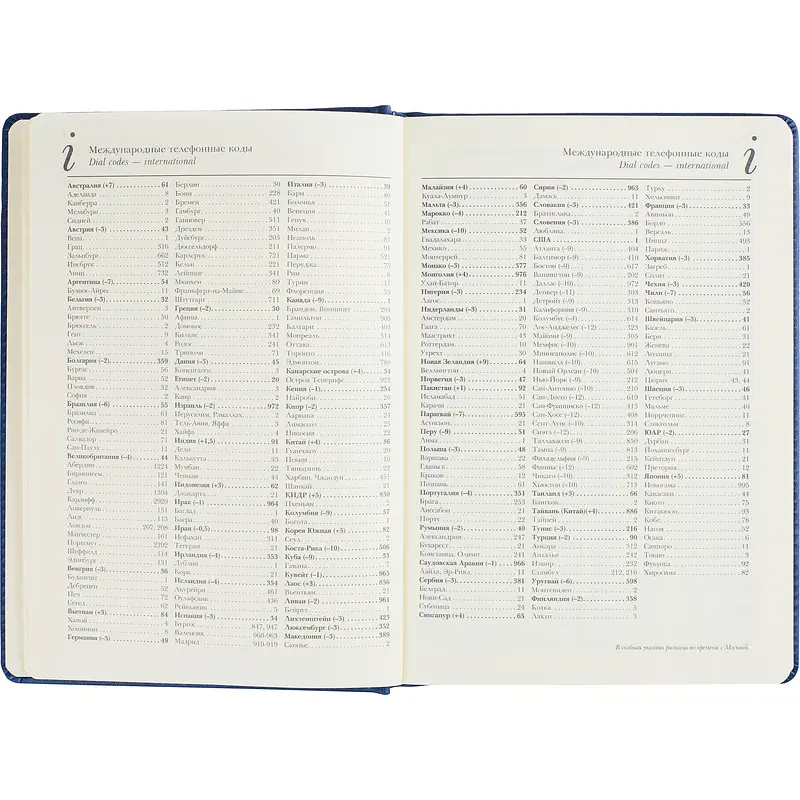 i
Международные телефонные коды
Dial codes — international
Австралия (+7) 61
Аделаида 8
Канберра 2
Мельбурн 3
Сидней 2
Австрия (–3) 43
Вена 1
Грац 316
Зальцбург 662
Инсбрук 512
Линц 732
Аргентина (–7) 54
Буэнос-Айрес 11
Бельгия (–3) 32
Антверпен 3
Брюгге 50
Брюссель 2
Гент 9
Льеж 4
Мехелен 15
Болгария (–2) 359
Бургас 56
Варна 52
Пловдив 32
София 2
Бразилия (–6) 55
Бразилиа 61
Ресифи 81
Рио-де-Жанейро 21
Салвадор 71
Сан-Паулу 11
Великобритания (–4) 44
Абердин 1224
Бирмингем 121
Глазго 141
Дувр 1304
Кардифф 2920
Ливерпуль 151
Лидс 113
Лондон 207, 208
Манчестер 161
Портсмут 2392
Шеффилд 114
Эдинбург 131
Венгрия (–3) 36
Будапешт 1
Дебрецен 52
Печ 72
Сегед 62
Вьетнам (+3) 84
Ханой 4
Хошимин 8
Германия (–3) 49
Берлин 30
Бонн 228
Бремен 421
Гамбург 40
Ганновер 511
Дрезден 351
Дуйсбург 203
Дюссельдорф 211
Карлсруэ 721
Кельн 221
Лейпциг 341
Мюнхен 89
Франкфурт-на-Майне 69
Штутгарт 711
Греция (–2) 30
Афины 1
Домокос 232
Килкис 341
Родос 241
Триполи 71
Дания (–3) 45
Копенгаген 3
Египет (–2) 20
Александрия 3
Каир 2
Израиль (–2) 972
Иерусалим, Рамаллах 2
Тель-Авив, Яффа 3
Хайфа 4
Индия (+1,5) 91
Дели 11
Калькутта 33
Мумбаи 22
Ченнаи 44
Индонезия (+3) 62
Джакарта 21
Ирак (–1) 964
Багдад 1
Басра 40
Иран (–0,5) 98
Исфахан 311
Тегеран 21
Ирландия (–4) 353
Дублин 1
Корк 21
Исландия (–4) 354
Акурейри 461
Оулафсвик 436
Рейкьявик 5
Испания (–3) 34
Бургос 847, 947
Валенсия 960-963
Мадрид 910-919
Италия (–3) 39
Бари 80
Болонья 51
Венеция 41
Генуя 10
Милан 2
Неаполь 81
Палермо 91
Парма 521
Перуджа 75
Рим 6
Турин 11
Флоренция 55
Канада (–9) 1
Брандон, Виннипег 204
Гамильтон 905
Калгари 403
Монреаль 514
Оттава 613
Торонто 416
Эдмонтон 780
Канарские острова (–4) 34
Остров Тенерифе 922
Кения (–1) 254
Найроби 20
Кипр (–2) 357
Ларнака 24
Лимассол 25
Никосия 22
Китай (+4) 86
Гуанчжоу 20
Пекин 10
Тяньцзинь 22
Харбин, Чжаодун 451
Шанхай 21
КНДР (+5) 850
Пхеньян 2
Колумбия (–9) 57
Богота 1
Корея Южная (+5) 82
Сеул 2
Коста-Рика (–10) 506
Куба (–9) 53
Гавана 7
Кувейт (–1) 965
Лаос (+3) 856
Вьентьян 21
Ливан (–2) 961
Бейрут 1
Лихтенштейн (–3) 423
Люксембург (–3) 352
Македония (–3) 389
Скопье 2
Международные телефонные коды
Dial codes — international
i
Малайзия (+4) 60
Куала-Лумпур 3
Мальта (–3) 356
Марокко (–4) 212
Рабат 37
Мексика (–10) 52
Гвадалахара 33
Мехико 55
Монтеррей 81
Монако (–3) 377
Монголия (+4) 976
Улан-Батор 11
Нигерия (–3) 234
Лагос 1
Нидерланды (–3) 31
Амстердам 20
Гаага 70
Маастрихт 43
Роттердам 10
Утрехт 30
Новая Зеландия (+9) 64
Веллингтон 4
Норвегия (–3) 47
Пакистан (+1) 92
Исламабад 51
Карачи 21
Парагвай (–7) 595
Асунсьон 21
Перу (–9) 51
Лима 1
Польша (–3) 48
Варшава 22
Гданьск 58
Краков 12
Познань 61
Португалия (–4) 351
Брага 253
Лиссабон 21
Порту 22
Румыния (–2) 40
Александрия 247
Бухарест 21
Констанца, Олимп 241
Саудовская Аравия (–1) 966
Лайла, Эр-Рияд 11
Сербия (–3) 381
Белград 11
Нови-Сад 21
Суботица 24
Сингапур (+4) 65
Сирия (–2) 963
Дамаск 11
Словакия (–3) 421
Братислава 2
Словения (–3) 386
Любляна 1
США 1
Атланта (–9) 404
Балтимор (–9) 410
Бостон (–9) 617
Вашингтон (–9) 202
Даллас (–10) 972
Денвер (–11) 303
Детройт (–9) 313
Калифорния (–9) 310
Колумбус (–9) 614
Лос-Анджелес (–12) 323
Майами (–9) 305
Мемфис (–10) 901
Миннеаполис (–10) 612
Нашвилл (–10) 615
Новый Орлеан (–10) 504
Нью-Йорк (–9) 212
Сан-Антонио (–10) 210
Сан-Диего (–12) 619
Сан-Франциско (–12) 415
Сан-Хосе (–12) 408
Сент-Луис (–10) 314
Сиэтл (–12) 206
Таллахасси (–9) 850
Тампа (–9) 813
Филадельфия (–9) 215
Финикс (–12) 602
Чикаго (–10) 312
Хьюстон (–10) 713
Таиланд (+3) 66
Бангкок 2
Тайвань (Китай)(+4) 886
Тайпей 2
Тунис (–3) 216
Турция (–2) 90
Анкара 312
Анталья 242
Измир 232
Стамбул 212, 216
Уругвай (–6) 598
Монтевидео 2
Финляндия (–2) 358
Котка 5
Лахти 3
Турку 2
Хельсинки 9
Франция (–3) 33
Авиньон 49
Бордо 556
Версаль 13
Ницца 493
Париж 1
Хорватия (–3) 385
Загреб 1
Чехия (–3) 420
Чили (–7) 56
Копьяпо 52
Сантьяго 2
Швейцария (–3) 41
Базель 61
Берн 31
Женева 22
Лозанна 21
Лугано 91
Люцерн 41
Цюрих 43, 44
Швеция (–3) 46
Гетеборг 31
Мальме 40
Норрчепинг 11
Стокгольм 8
ЮАР (–2) 27
Дурбан 31
Йоханнесбург 11
Кейптаун 21
Претория 12
Япония (+5) 81
Кавасаки 44
Киото 75
Китакюсю 93
Кобе 78
Нагоя 52
Осака 6
Саппоро 11
Токио 3
Фукуока 92
Хиросима 82
В скобках указана разница во времени с Москвой.